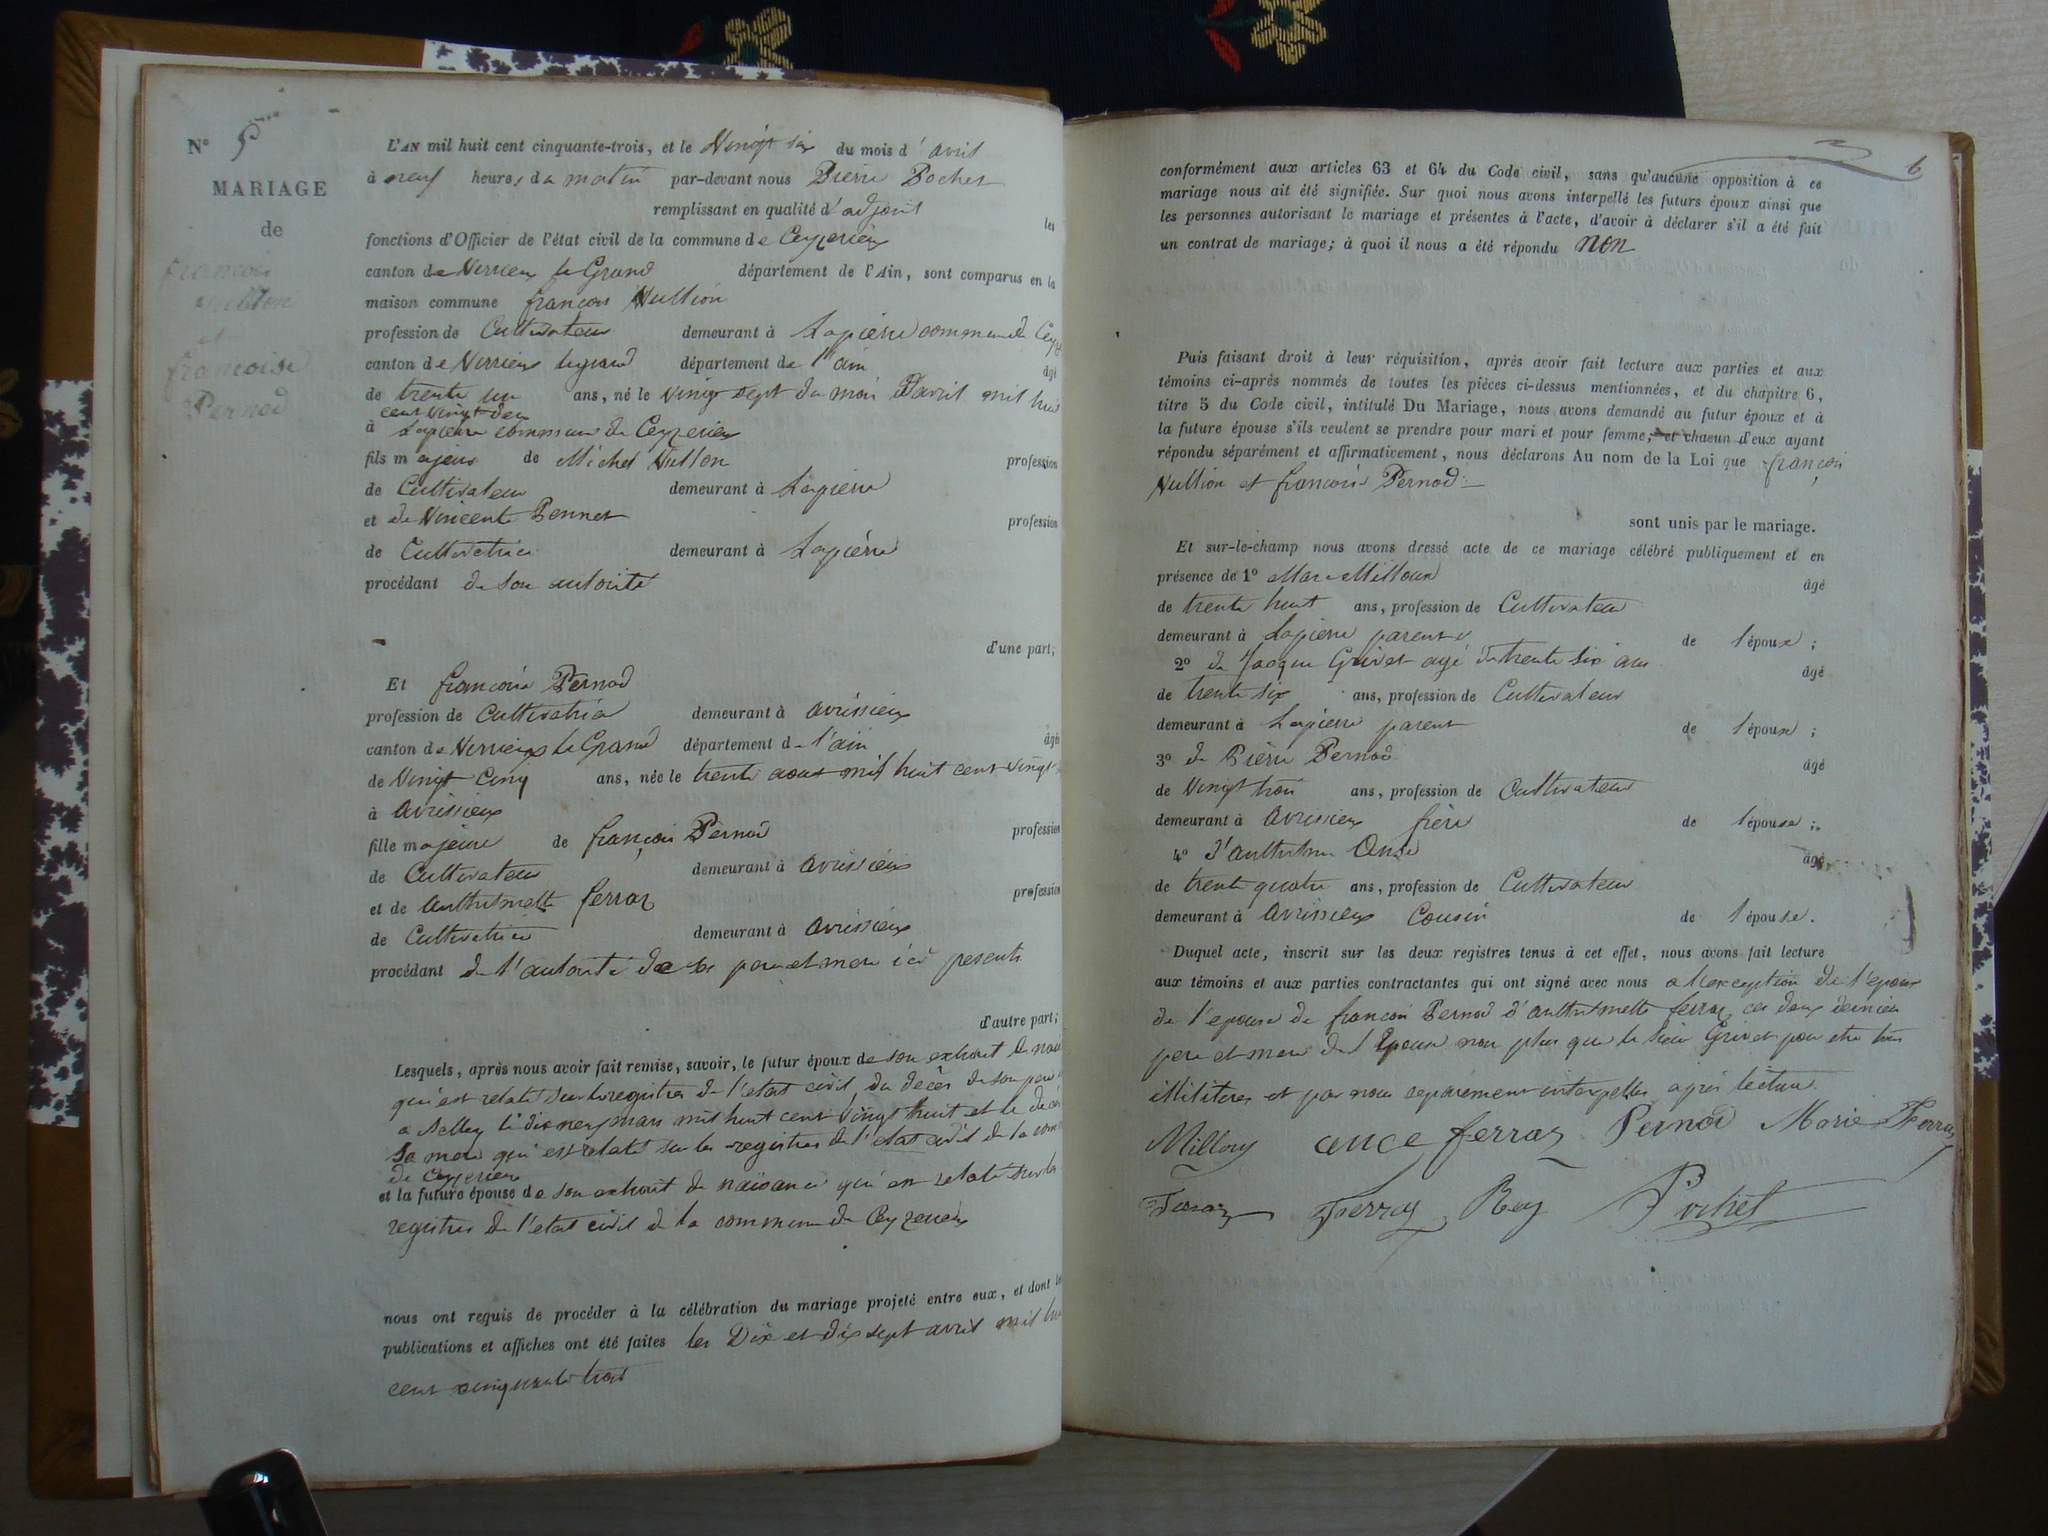 N° 5
MARIAGE
de
françois
Nullion
et
francoise
Pernod
L'AN mil huit cent cinquante-trois, et le Vingt six du mois d'avril
à neuf heures du matin par-devant nous Pierre Pochet
remplissant en qualité d'adjoint les
fonctions d'Officier de l'état civil de la commune de Ceyzerieu
canton de Virrieux le Grand département de l'Ain, sont comparus en la
maison commune françois Nullion
profession de Cultivateur demeurant à Lapierre commune de Ceyz
canton de Virrieux legrand département de l'ain âgé
de trente un ans, né le vingt sept du mois D'avril mil huit
cent vingt deux
à Lapierre commune de Ceyzerieu
fils majeur de Michel Nullion profession
de Cultivateur demeurant à Lapierre
et de Vincente Bonnet profession
de Cultivatrice demeurant à Lapierre
procédant de son autorité
d'une part;
Et francoise Pernod
profession de Cultivatrice demeurant à avrissieux
canton de Virrieux le Grand département de l'ain âgée
de Vingt Cinq ans, née le trente aout mil huit cent vingt
à avrissieux
fille majeure de françois Pernod profession
de Cultivateur demeurant à avrissieux
et de anthelmette ferraz profession
de Cultivatrice demeurant à avrissieux
procédant de l'autorité de ses pere et mere ici present
d'autre part;
Lesquels, après nous avoir fait remise, savoir, le futur époux de son extrait de nais
qui est relaté sur les registres de l'etat civil, du décès de son pere
a Belley le dix neuf mars mil huit cent vingt huit et le décès
sa mere qui est relaté sur les registres de l'etat civil de la com
de Ceyzerieu
et la future épouse de son extrait de naissance qui est relaté sur les
registres de l'etat civil de la commune de Ceyzerieu
nous ont requis de procéder à la célébration du mariage projeté entre eux, et dont les
publications et affiches ont été faites les Dix et dix sept avril mil hu
cent cinquante trois
6
conformément aux articles 63 et 64 du Code civil, sans qu'aucune opposition à ce
mariage nous ait été signifiée. Sur quoi nous avons interpellé les futurs époux ainsi que
les personnes autorisant le mariage et présentes à l'acte, d'avoir à déclarer s'il a été fait
un contrat de mariage; à quoi il nous a été répondu non
Puis faisant droit à leur réquisition, après avoir fait lecture aux parties et aux
témoins ci-après nommés de toutes les pièces ci-dessus mentionnées, et du chapitre 6,
titre 5 du Code civil, intitulé Du Mariage, nous avons demandé au futur époux et à
la future épouse s'ils veulent se prendre pour mari et pour femme; et chacun d'eux ayant
répondu séparément et affirmativement, nous déclarons Au nom de la Loi que françois
Nullion et francoise Pernod
sont unis par le mariage.
Et sur-le-champ nous avons dressé acte de ce mariage célébré publiquement et en
présence de 1° Marc Milloux âgé
de trente huit ans, profession de Cultivateur
demeurant à Lapierre parent de l'époux;
2° de Jacque Grivet agé de trente six ans âgé
de trente six ans, profession de Cultivateur
demeurant à Lapierre parent de l'époux;
3° de Pierre Pernod âgé
de Vingt trois ans, profession de Cultivateur
demeurant à avrissieux frère de l'épouse;
4° d'anthelme Ance âgé
de trente quatre ans, profession de Cultivateur
demeurant à avrissieux Cousin de l'épouse.
Duquel acte, inscrit sur les deux registres tenus à cet effet, nous avons fait lecture
aux témoins et aux parties contractantes qui ont signé avec nous a l'exception de l'epoux
de l'epouse de francois Pernod d'anthelmette ferraz ces deux derniers
pere et mere de l'Epouse non plus que le sieur Grivet pour etre tous
illiteres et par nous separement interpelles apres lecture.
Milloux ance ferraz Pernod Marie Ferraz
Ferraz Ferraz Rey Pochet